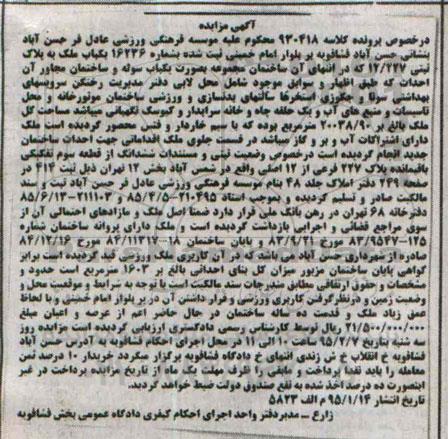 آگهی مزایده
درخصوص پرونده کلاسه ۹۳۰۴۱۸ محکوم علیه موسسه فرهنگی ورزشی عادل فر حسن آباد
بنشانی حسن آباد فشافویه بر بلوار امام خمینی ثبت شده بشماره ۱۶۲۳۶ یکباب ملک به پلاک
ثبتی ۱۲/۲۲۷ که در انتهای آن ساختمان مجموعه بصورت یکباب سوله و ساختمان مجاور آن
احداث که طبق اظهار و سوابق موجود شامل محل لابی دفتر مدیریت رختکن سرویسهای
بهداشتی سونا و جکوزی استخرها سالنهای بدنسازی و ورزشی ساختمان موتورخانه و محل
تاسیسات و منبع های آب و یک حلقه چاه و خانه سرایدار و کیوسک نگهبانی میباشد مساحت کل
ملک بالغ بر ۲۰۰۳۸/۹۰ مترمربع بوده که با سیم خاردار و فنس محصور گردیده است ملک
دارای اشتراکات آب و بر و گاز میباشد در قسمت جلوی ملک اقداماتی جهت احداث ساختمان
جدید انجام گردیده است درخصوص وضعیت ثبتی و مستندات ششدانگ از قطعه سوم تفکیکی
باقیمانده پلاک ۲۲۷ فرعی از ۱۲ اصلی واقع در شمس آباد ۱۲ تهران ذیل ثبت ۴۱۴ در
صفحه ۲۴۹ دفتر املاک جلد ۴۸ بنام موسسه فرهنگی ورزشی عادل فر حسن آباد ثبت و سند
مالکیت صادر و تسلیم گردیده و بموجب اسناد ۲۱۰۴۹۵-۸۵/۴/۵ و ۲۱۱۱۰۳-۸۵/۶/۱۳
دفترخانه ۶۸ تهران در رهن بانک ملی قرار دارد ضمنا اصل ملک و مازادهای احتمالی آن از
سوی مراجع قضائی و اجرایی بازداشت گردیده است و ملک دارای پروانه ساختمان شماره
۸۳/۹۵۴۷-۱۲۵ مورخ ۸۳/۹/۲۱ و پایان ساختمان ۱۸-۸۴/۱۲۳۱۷ مورخ ۸۴/۱۲/۱۶
صادره از شهرداری حسن آباد می باشد که در آن کاربری ملک ورزشی قید گردیده است برابر
گواهی پایان ساختمان مزبور میزان کل بنای احداثی بالغ بر ۱۶۰۳ مترمربع است حدود و
مشخصات و حقوق ارتفاقی مطابق مندرجات سند مالکیت است با توجه به شرایط و موقعیت محل و
وضعیت زمین و درنظر گرفتن کاربری ورزشی و قرار داشتن آن در بر بلوار امام خمینی و با لحاظ
عمق زیاد ملک و قدمت ده ساله ساختمان در حال حاضر اعم از عرصه و اعیان مبلغ
۲۱/۵۰۰/۰۰۰/۰۰۰ ریال توسط کارشناس رسمی دادگستری ارزیابی گردیده است مزایده روز
سه شنبه بتاریخ ۹۵/۲/۷ ساعت ۱۰ الی ۱۱ در محل اجرای احکام فشافویه به آدرس حسن آباد
فشافویه خ انقلاب خ ش زندی انتهای خ دادگاه فشافویه برگزار میگردد خریدار ۱۰ درصد ثمن
معامله را باید نقدا پرداخت و مابقی را ظرف مهلت یک ماه از تاریخ مزایده پرداخت در غیر
اینصورت ده درصد اخذ شده به نفع صندوق دولت ضبط خواهد گردید.
تاریخ انتشار ۹۵/۱/۱۴ م الف ۵۸۲۳
زارع - مدیردفتر واحد اجرای احکام کیفری دادگاه عمومی بخش فشافویه